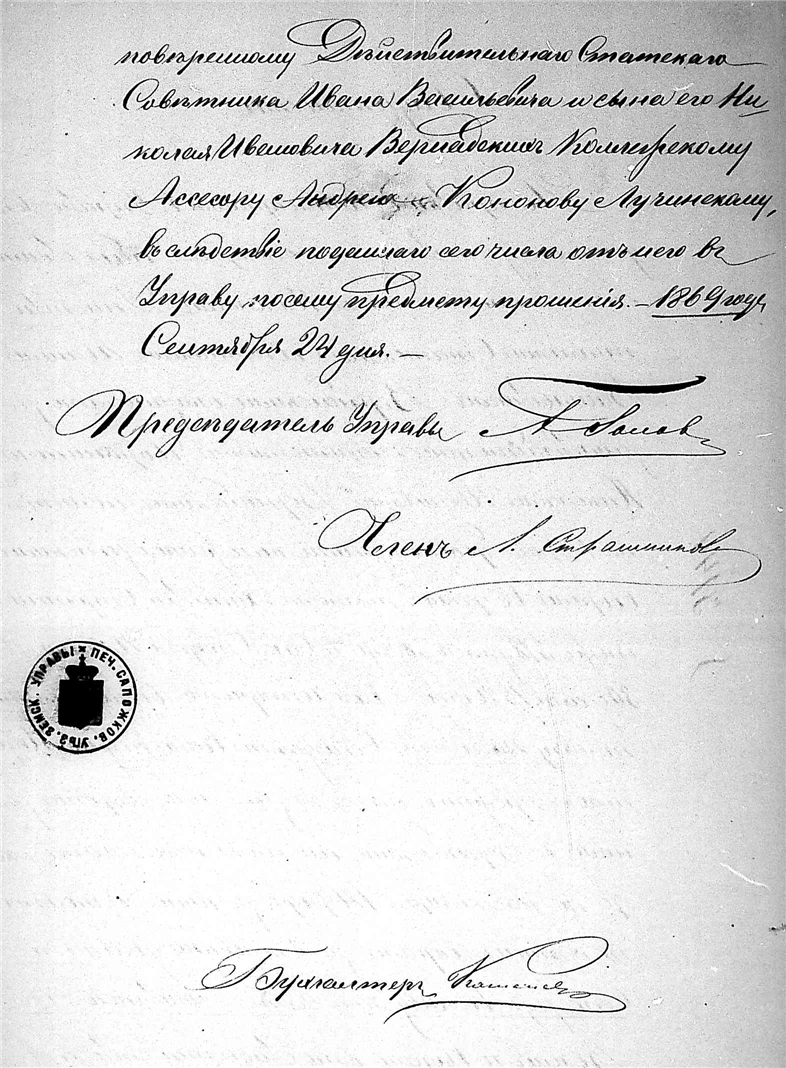 повѣренному Дѣйствительнаго Статскаго
Совѣтника Ивана Васильевича и сына его Ни-
колая Ивановича Вернадскихъ Коллежскому
Ассесору Андрею Кононову Лучинскому,
въ слѣдствіе поданнаго сего числа отъ него въ
Управу по сему предмету прошенія. — 1869 года
Сентября 24 дня. —
Предсѣдатель Управы
Членъ А. Страшниковъ
ПЕЧ. САПОЖКОВ. УѢЗ. ЗЕМСК. УПРАВЫ
Бухгалтеръ